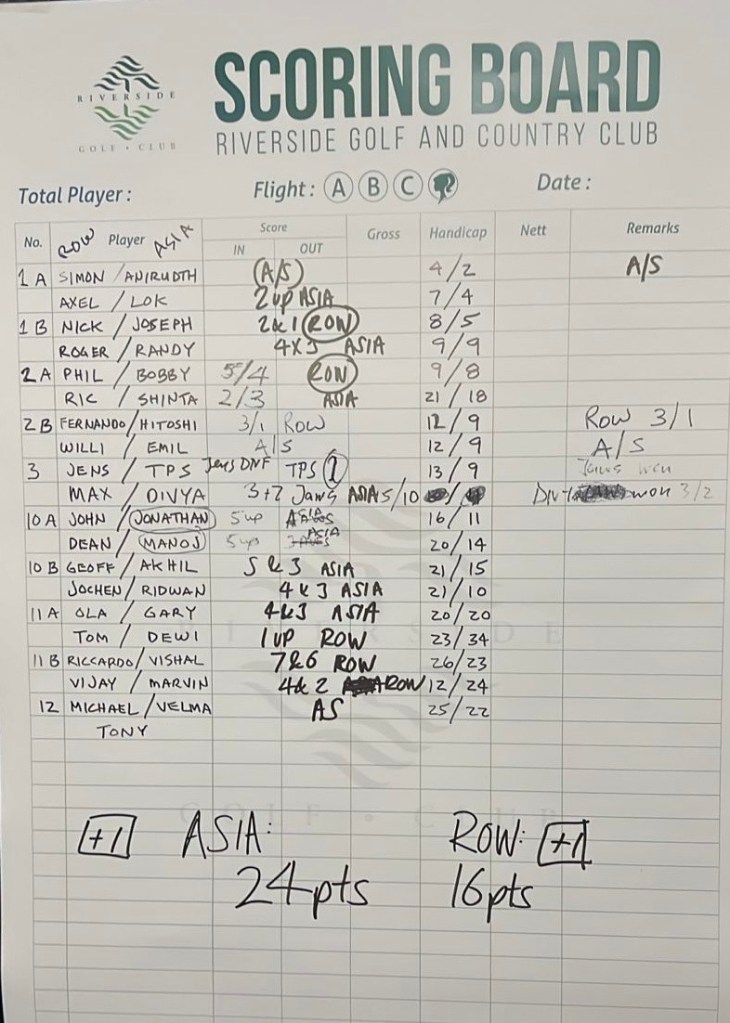 RIVERSIDE
GOLF • CLUB
SCORING BOARD
RIVERSIDE GOLF AND COUNTRY CLUB
Total Player : Flight : A B C Date :
No. ROW Player ASIA Score IN OUT Gross Handicap Nett Remarks
1 A SIMON / ANIRUDTH A/S 4/2 A/S
AXEL / LOK 2 up ASIA 7/4
1 B NICK / JOSEPH 2&1 ROW 8/5
ROGER / RANDY 4X3 ASIA 9/9
2 A PHIL / BOBBY 5/4 ROW 9/8
RIC / SHINTA 2/3 ASIA 21/18
2 B FERNANDO / HITOSHI 3/1 ROW 12/9 ROW 3/1
WILLI / EMIL A/S 12/9 A/S
3 JENS / TPS Jens DNF TPS 13/9
MAX / DIVYA 3+2 ASIA 5/10 won 3/2
10 A JOHN / JONATHAN 5up ASIA 16/11
DEAN / MANOJ 5up ASIA 20/14
10 B GEOFF / AKHIL 5 & 3 ASIA 21/15
JOCHEN / RIDWAN 4 & 3 ASIA 21/10
11 A OLA / GARY 4&3 ASIA 20/20
TOM / DEWI 1 UP ROW 23/34
11 B RICCARDO / VISHAL 7&6 ROW 26/23
VIJAY / MARVIN 4&2 ROW 12/24
12 MICHAEL / VELMA AS 25/22
TONY
RIVERSIDE
GOLF • CLUB
+1 ASIA: ROW: +1
24pts 16pts